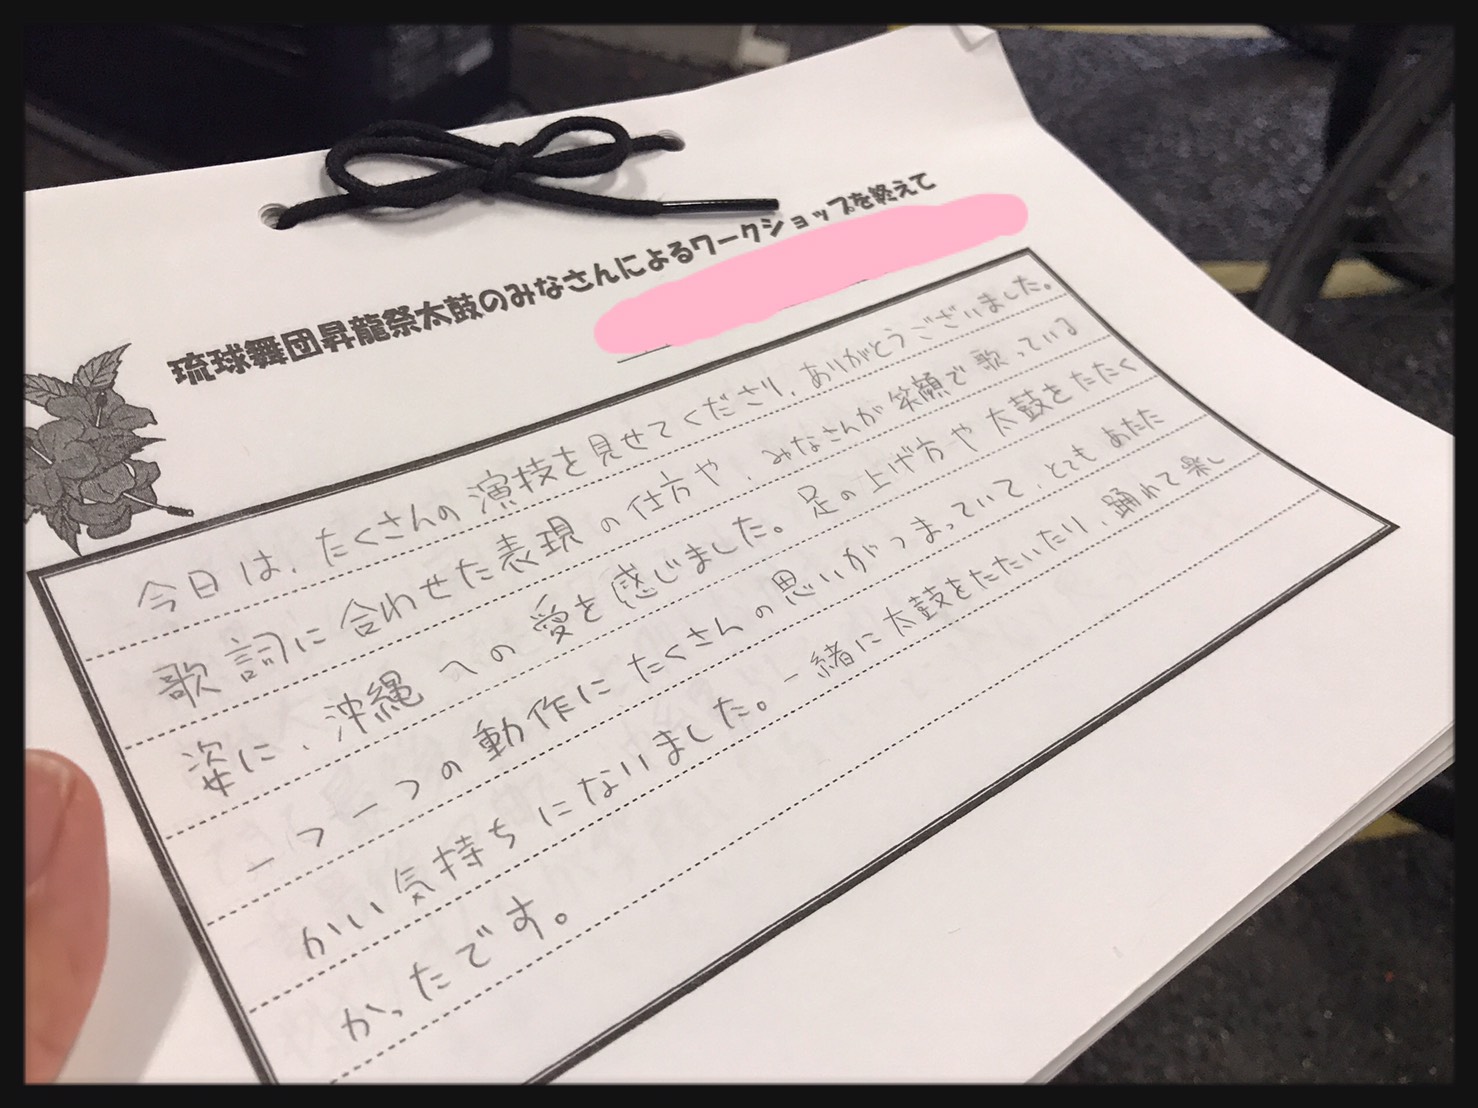 琉球舞団昇龍祭太鼓のみなさんによるワークショップを終えて
今日は、たくさんの演技を見せてくださり、ありがとうございました。
歌詞に合わせた表現の仕方や、みなさんが笑顔で歌っている
姿に、沖縄への愛を感じました。足の上げ方や太鼓をたたく
一つ一つの動作にたくさんの思いがつまっていて、とてもあたた
かい気持ちになりました。一緒に太鼓をたたいたり、踊れて楽し
かったです。